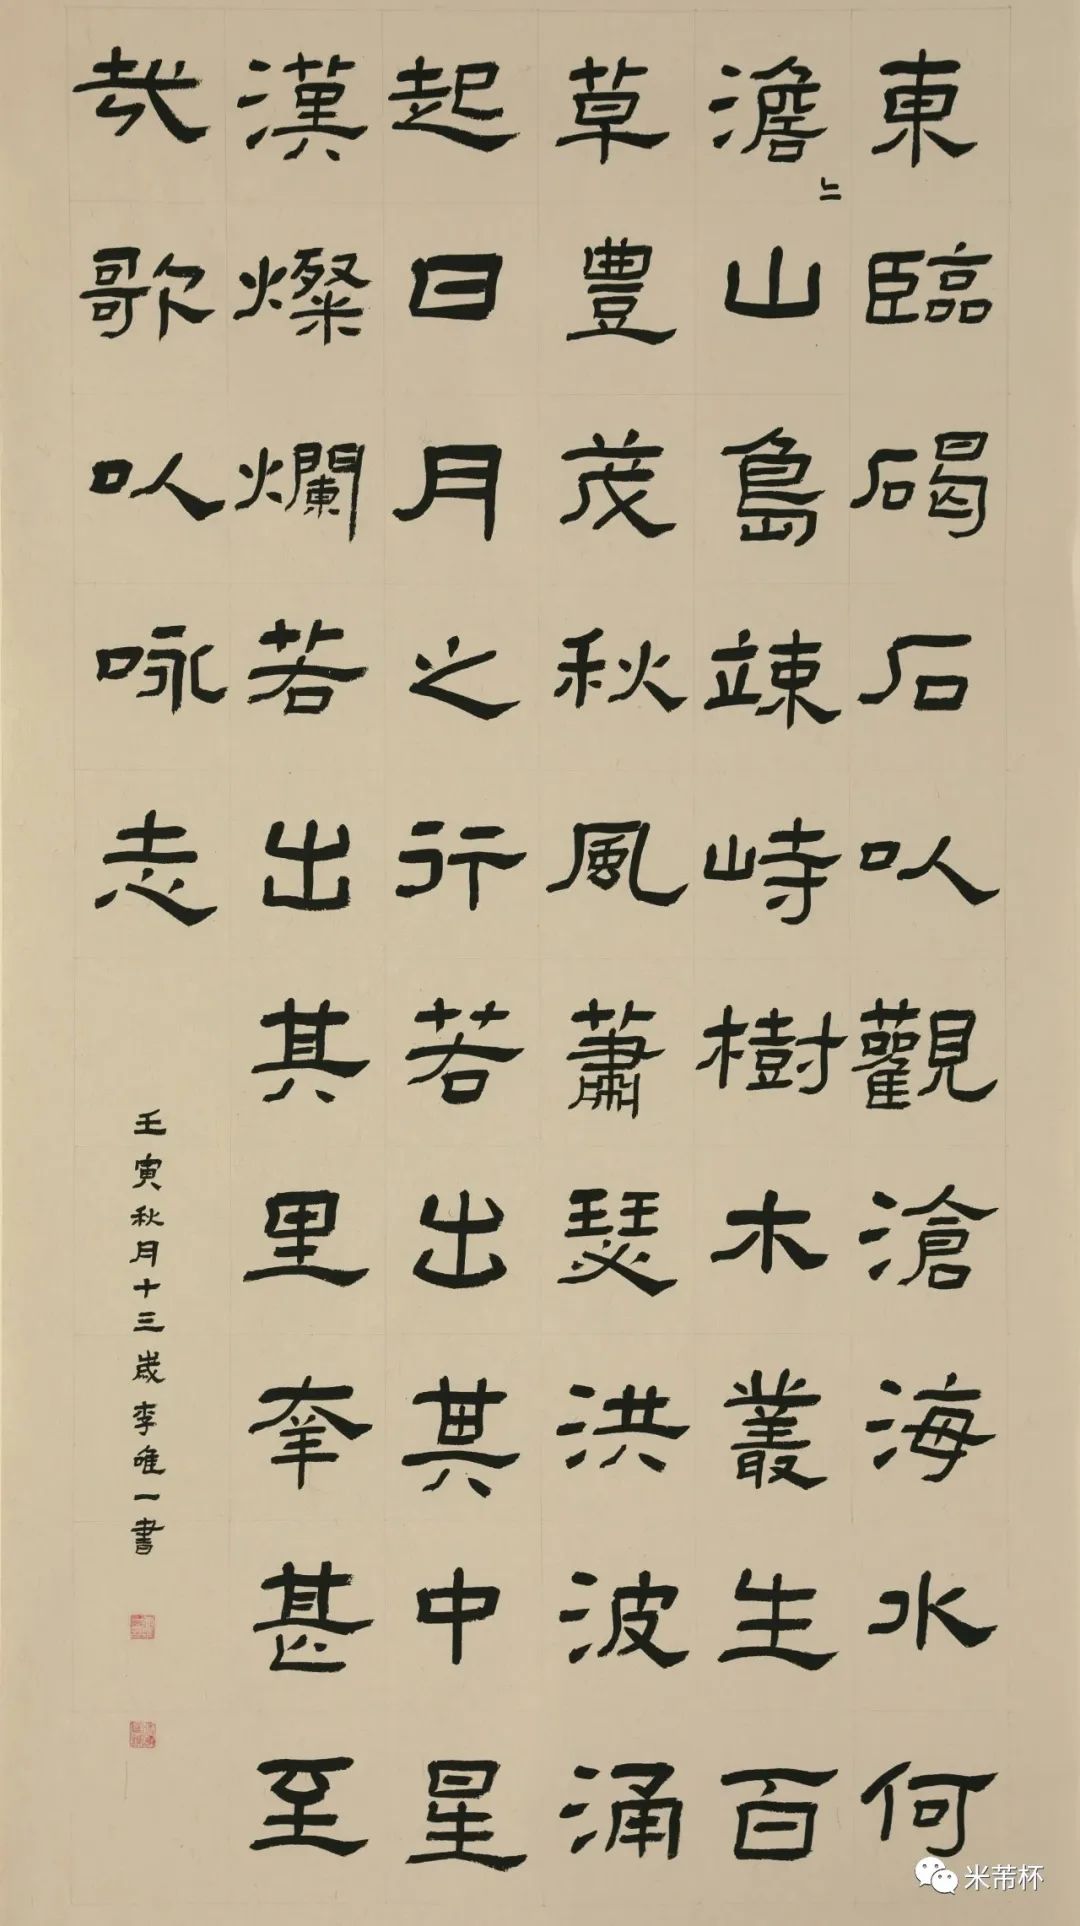 東臨碣石以觀滄海水何
澹々山島竦峙樹木叢生百
草豐茂秋風蕭瑟洪波涌
起日月之行若出其中星
漢燦爛若出其里幸甚至
哉歌以咏志
壬寅秋月十三歲李唯一書
米芾杯